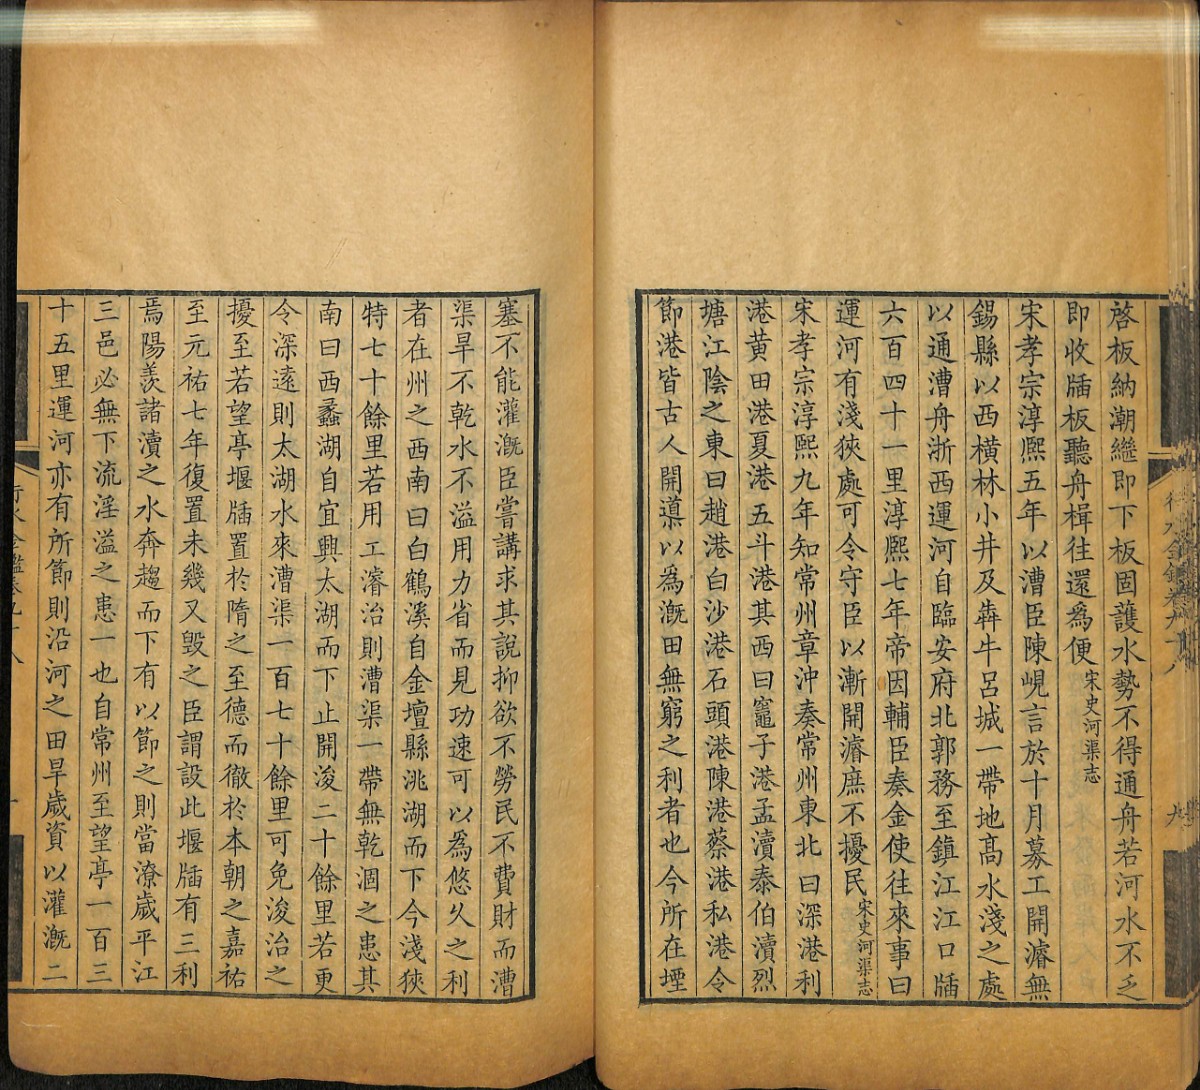 啓板納潮繼即下板固護水勢不得通舟若河水不乏
即收牐板聽舟楫往還爲便宋史河渠志
宋孝宗淳熙五年以漕臣陳峴言於十月募工開濬無
錫縣以西橫林小井及犇牛呂城一帶地髙水淺之處
以通漕舟浙西運河自臨安府北郭務至鎮江江口牐
六百四十一里淳熙七年帝因輔臣奏金使往來事曰
運河有淺狹處可令守臣以漸開濬庶不擾民宋史河渠志
宋孝宗淳熙九年知常州章沖奏常州東北曰深港利
港黄田港夏港五斗港其西曰竈子港孟瀆泰伯瀆烈
塘江陰之東曰趙港白沙港石頭港陳港蔡港私港令
節港皆古人開導以爲漑田無窮之利者也今所在堙
塞不能灌漑臣嘗講求其說抑欲不勞民不費財而漕
渠旱不乾水不溢用力省而見功速可以爲悠久之利
者在州之西南曰白鶴溪自金壇縣洮湖而下今淺狹
特七十餘里若用工濬治則漕渠一帶無乾涸之患其
南曰西蠡湖自宜興太湖而下止開浚二十餘里若更
令深遠則太湖水來漕渠一百七十餘里可免浚治之
擾至若望亭堰牐置於隋之至德而徹於本朝之嘉祐
至元祐七年復置未幾又毁之臣謂設此堰牐有三利
焉陽羨諸瀆之水奔趨而下有以節之則當潦歲平江
三邑必無下流淫溢之患一也自常州至望亭一百三
十五里運河亦有所節則沿河之田旱歲資以灌漑二